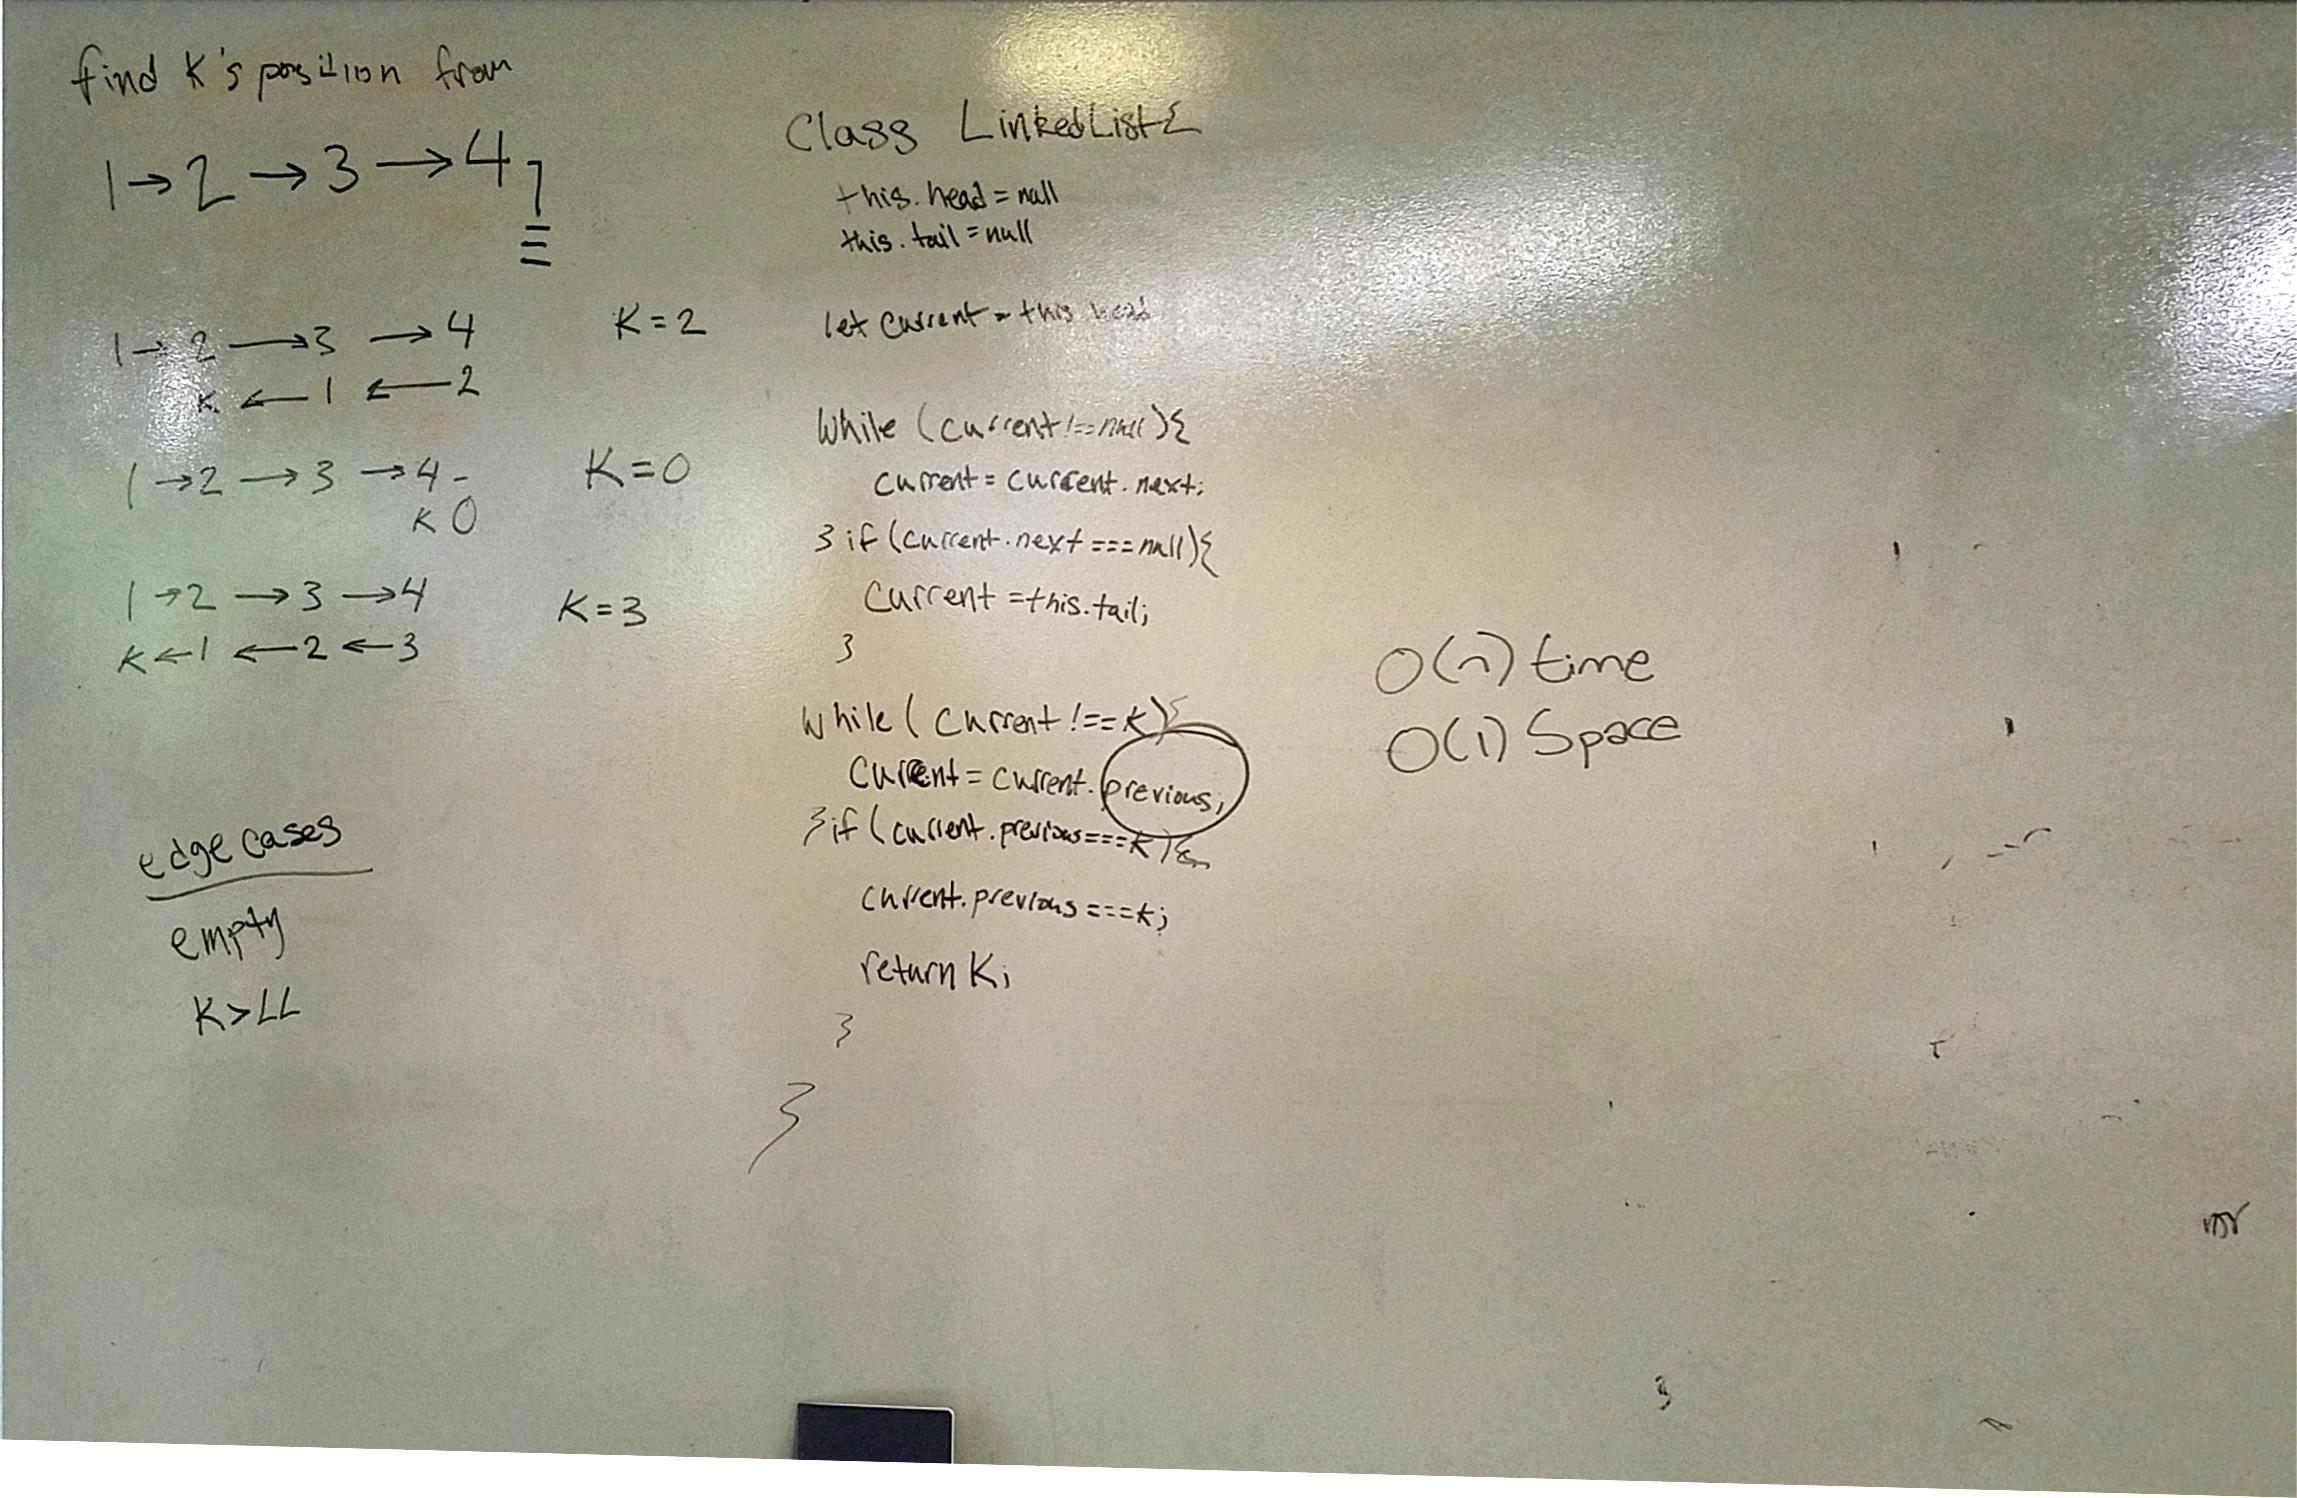 find K's position from
1 → 2 → 3 → 4
1 → 2 → 3 → 4 K = 2
K ← 1 ← 2
1 → 2 → 3 → 4 K = 0
K 0
1 → 2 → 3 → 4 K = 3
K ← 1 ← 2 ← 3
edge cases
empty
K > LL
Class LinkedList {
this.head = null
this.tail = null
let current = this head
While (current !== null) {
current = current.next;
} if (current.next === null) {
Current = this.tail;
}
While (Current !== K) {
Current = current.previous;
} if (current.previous === K) {
current.previous === K;
return K;
}
}
O(n) time
O(1) Space